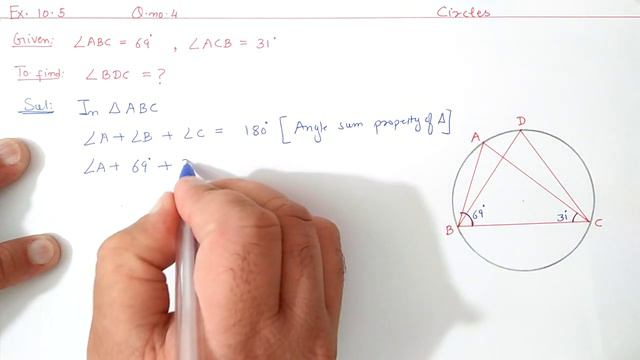 Ex. 10.5 Q.no.4 Circles
Given: ∠ABC = 69°, ∠ACB = 31°
To find: ∠BDC = ?
Sol: In △ABC
∠A + ∠B + ∠C = 180° [Angle sum property of △]
∠A + 69° +
A D
69° 31°
B C